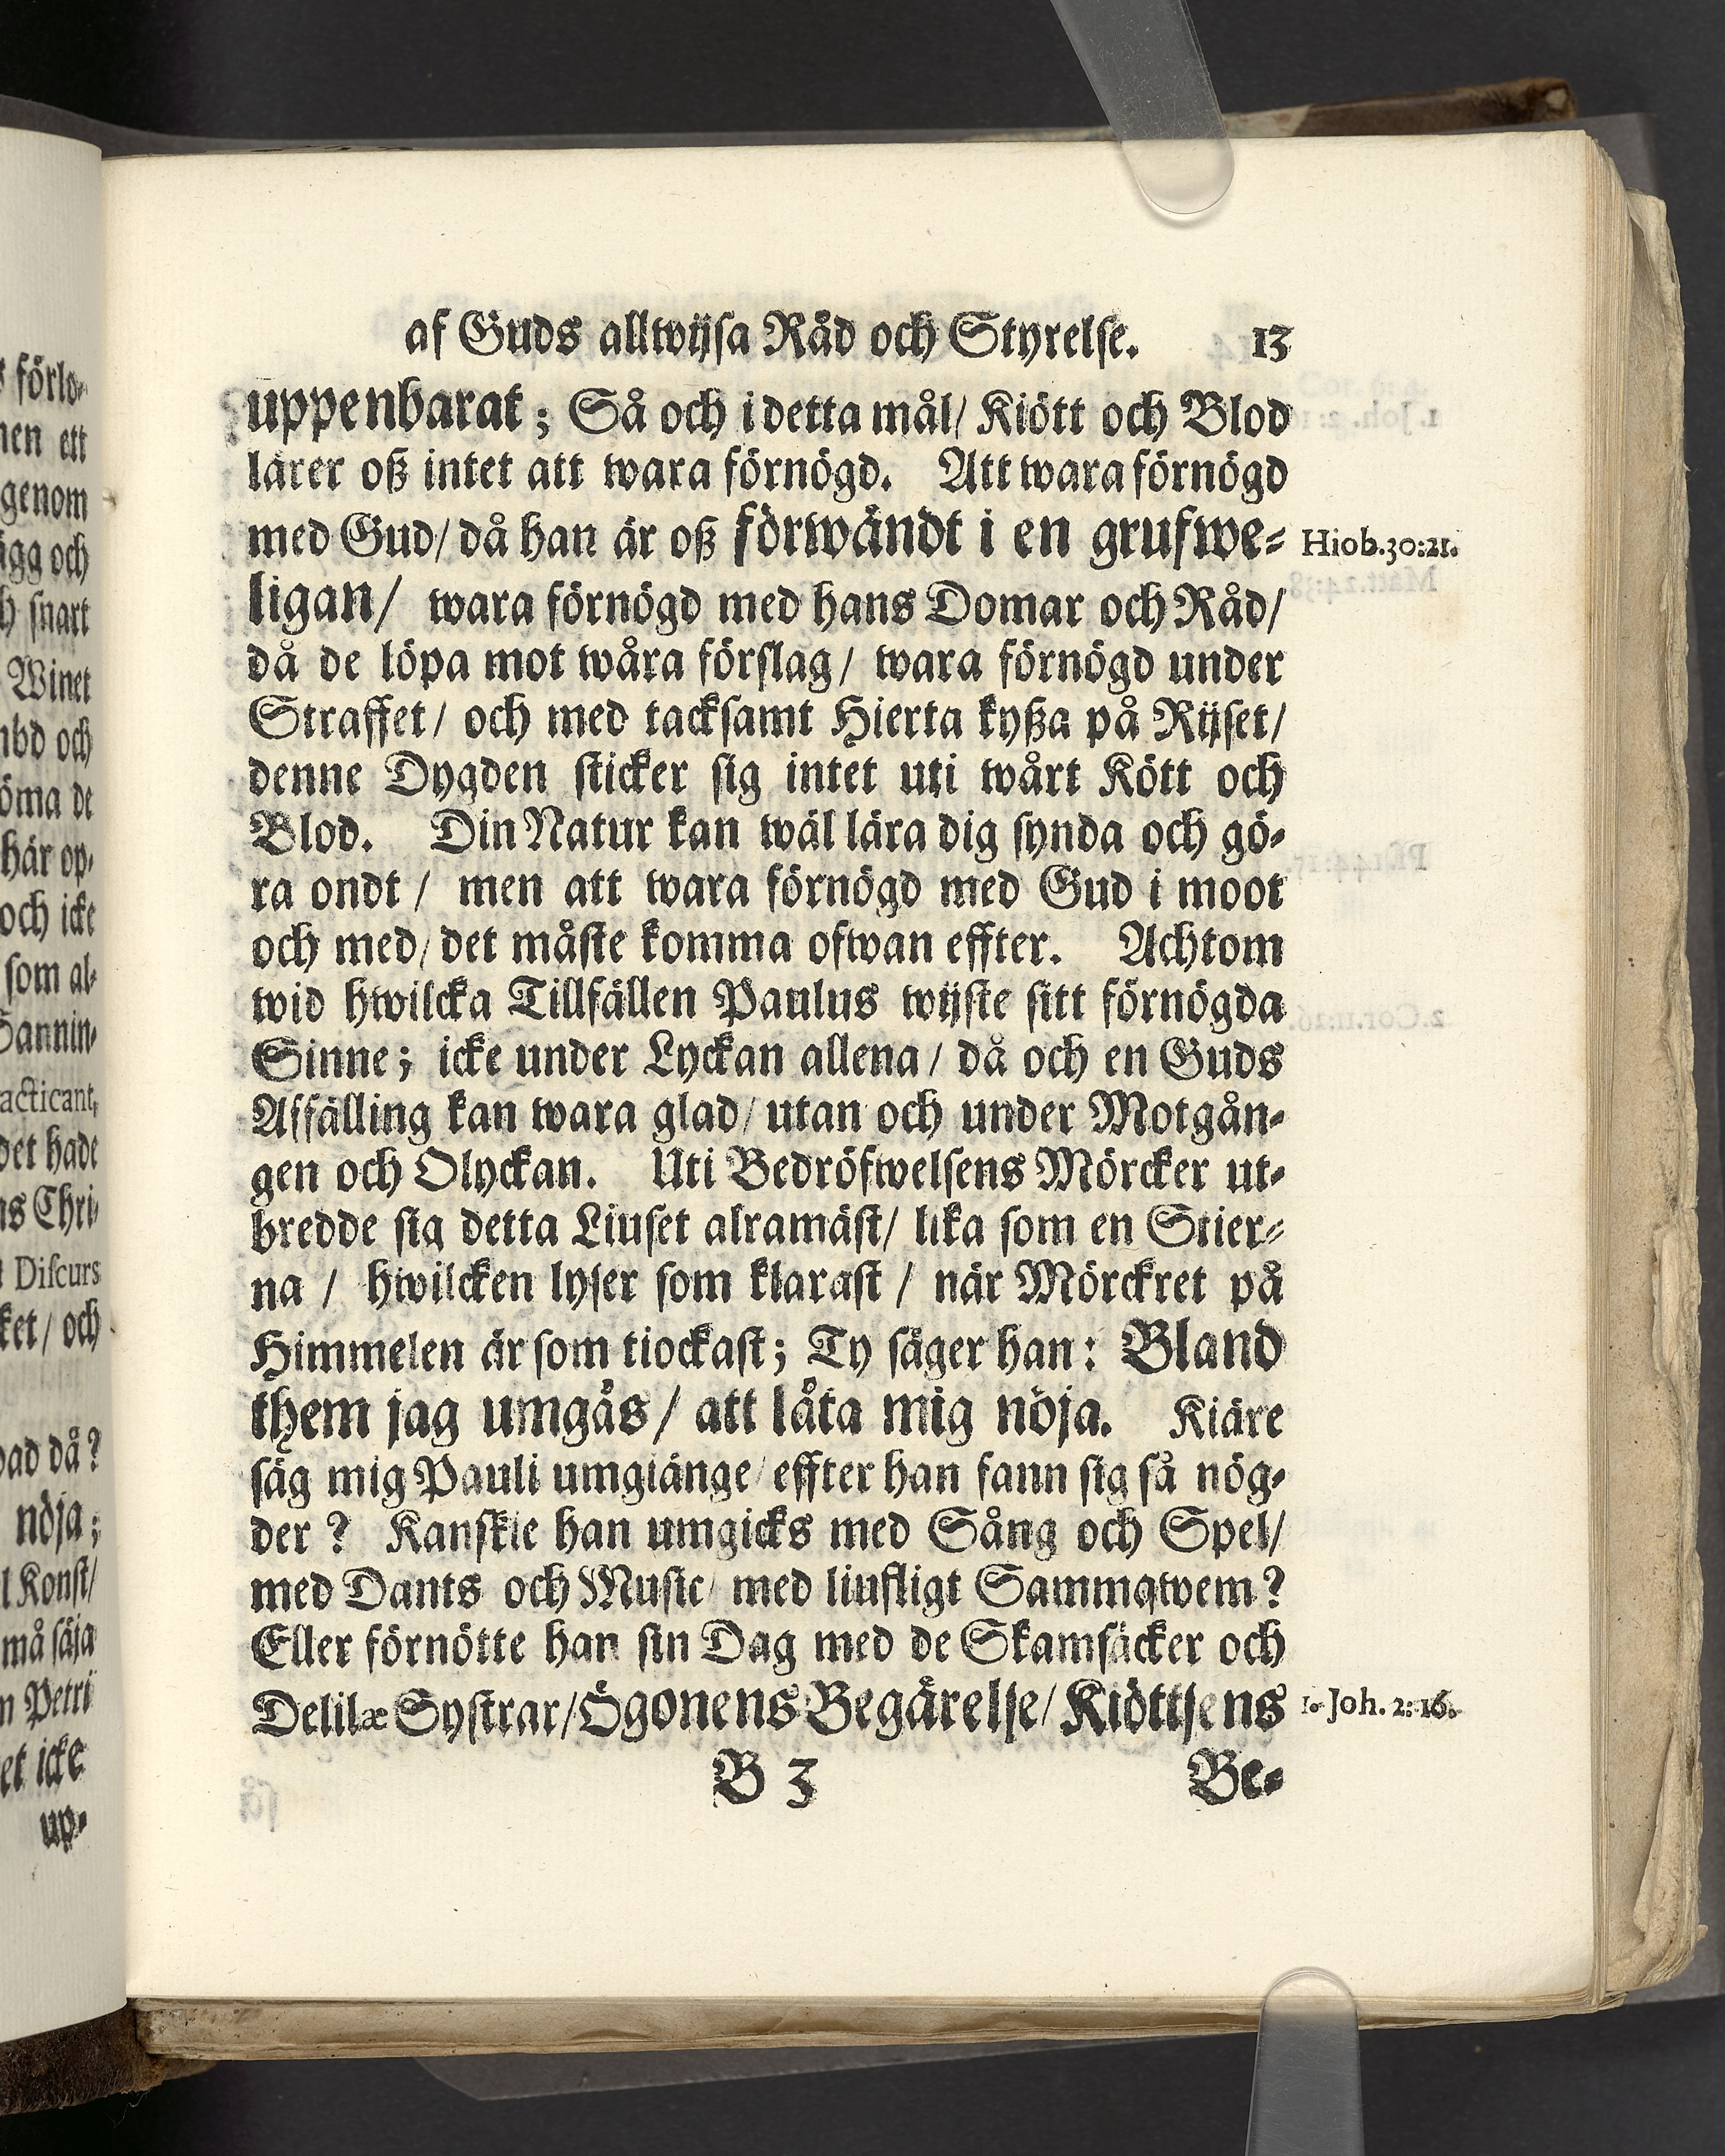 af Guds allwijsa Råd och Styrelse. 13
uppenbarat; Så och i detta mål/ Kiött och Blod
lärer oß intet att wara förnögd. Att wara förnögd
med Gud/ då han är oß förwändt i en grufwe-
Hiob.30:21.
ligan/ wara förnögd med hans Domar och Råd/
då de löpa mot wåra förslag/ wara förnögd under
Straffet/ och med tacksamt Hierta kyßa på Rijset/
denne Dygden sticker sig intet uti wårt Kött och
Blod. Din Natur kan wäl lära dig synda och gö-
ra ondt/ men att wara förnögd med Gud i moot
och med/ det måste komma ofwan effter. Achtom
wid hwilcka Tillfällen Paulus wijste sitt förnögda
Sinne; icke under Lyckan allena/ då och en Guds
Affälling kan wara glad/ utan och under Motgån-
gen och Olyckan. Uti Bedröfwelsens Mörcker ut-
bredde sig detta Liuset alramäst/ lika som en Stier-
na/ hwilcken lyser som klarast/ när Mörckret på
Himmelen är som tiockast; Ty säger han: Bland
them jag umgås/ att låta mig nöja. Kiäre
säg mig Pauli umgiänge/ effter han fann sig så nög-
der? Kanskie han umgicks med Sång och Spel/
med Dants och Music/ med liufligt Sammqwem?
Eller förnötte han sin Dag med de Skamsäcker och
Delilæ Systrar/ Ögonens Begärelse/ Kiöttsens
1. Joh. 2:16.
B 3 Be-